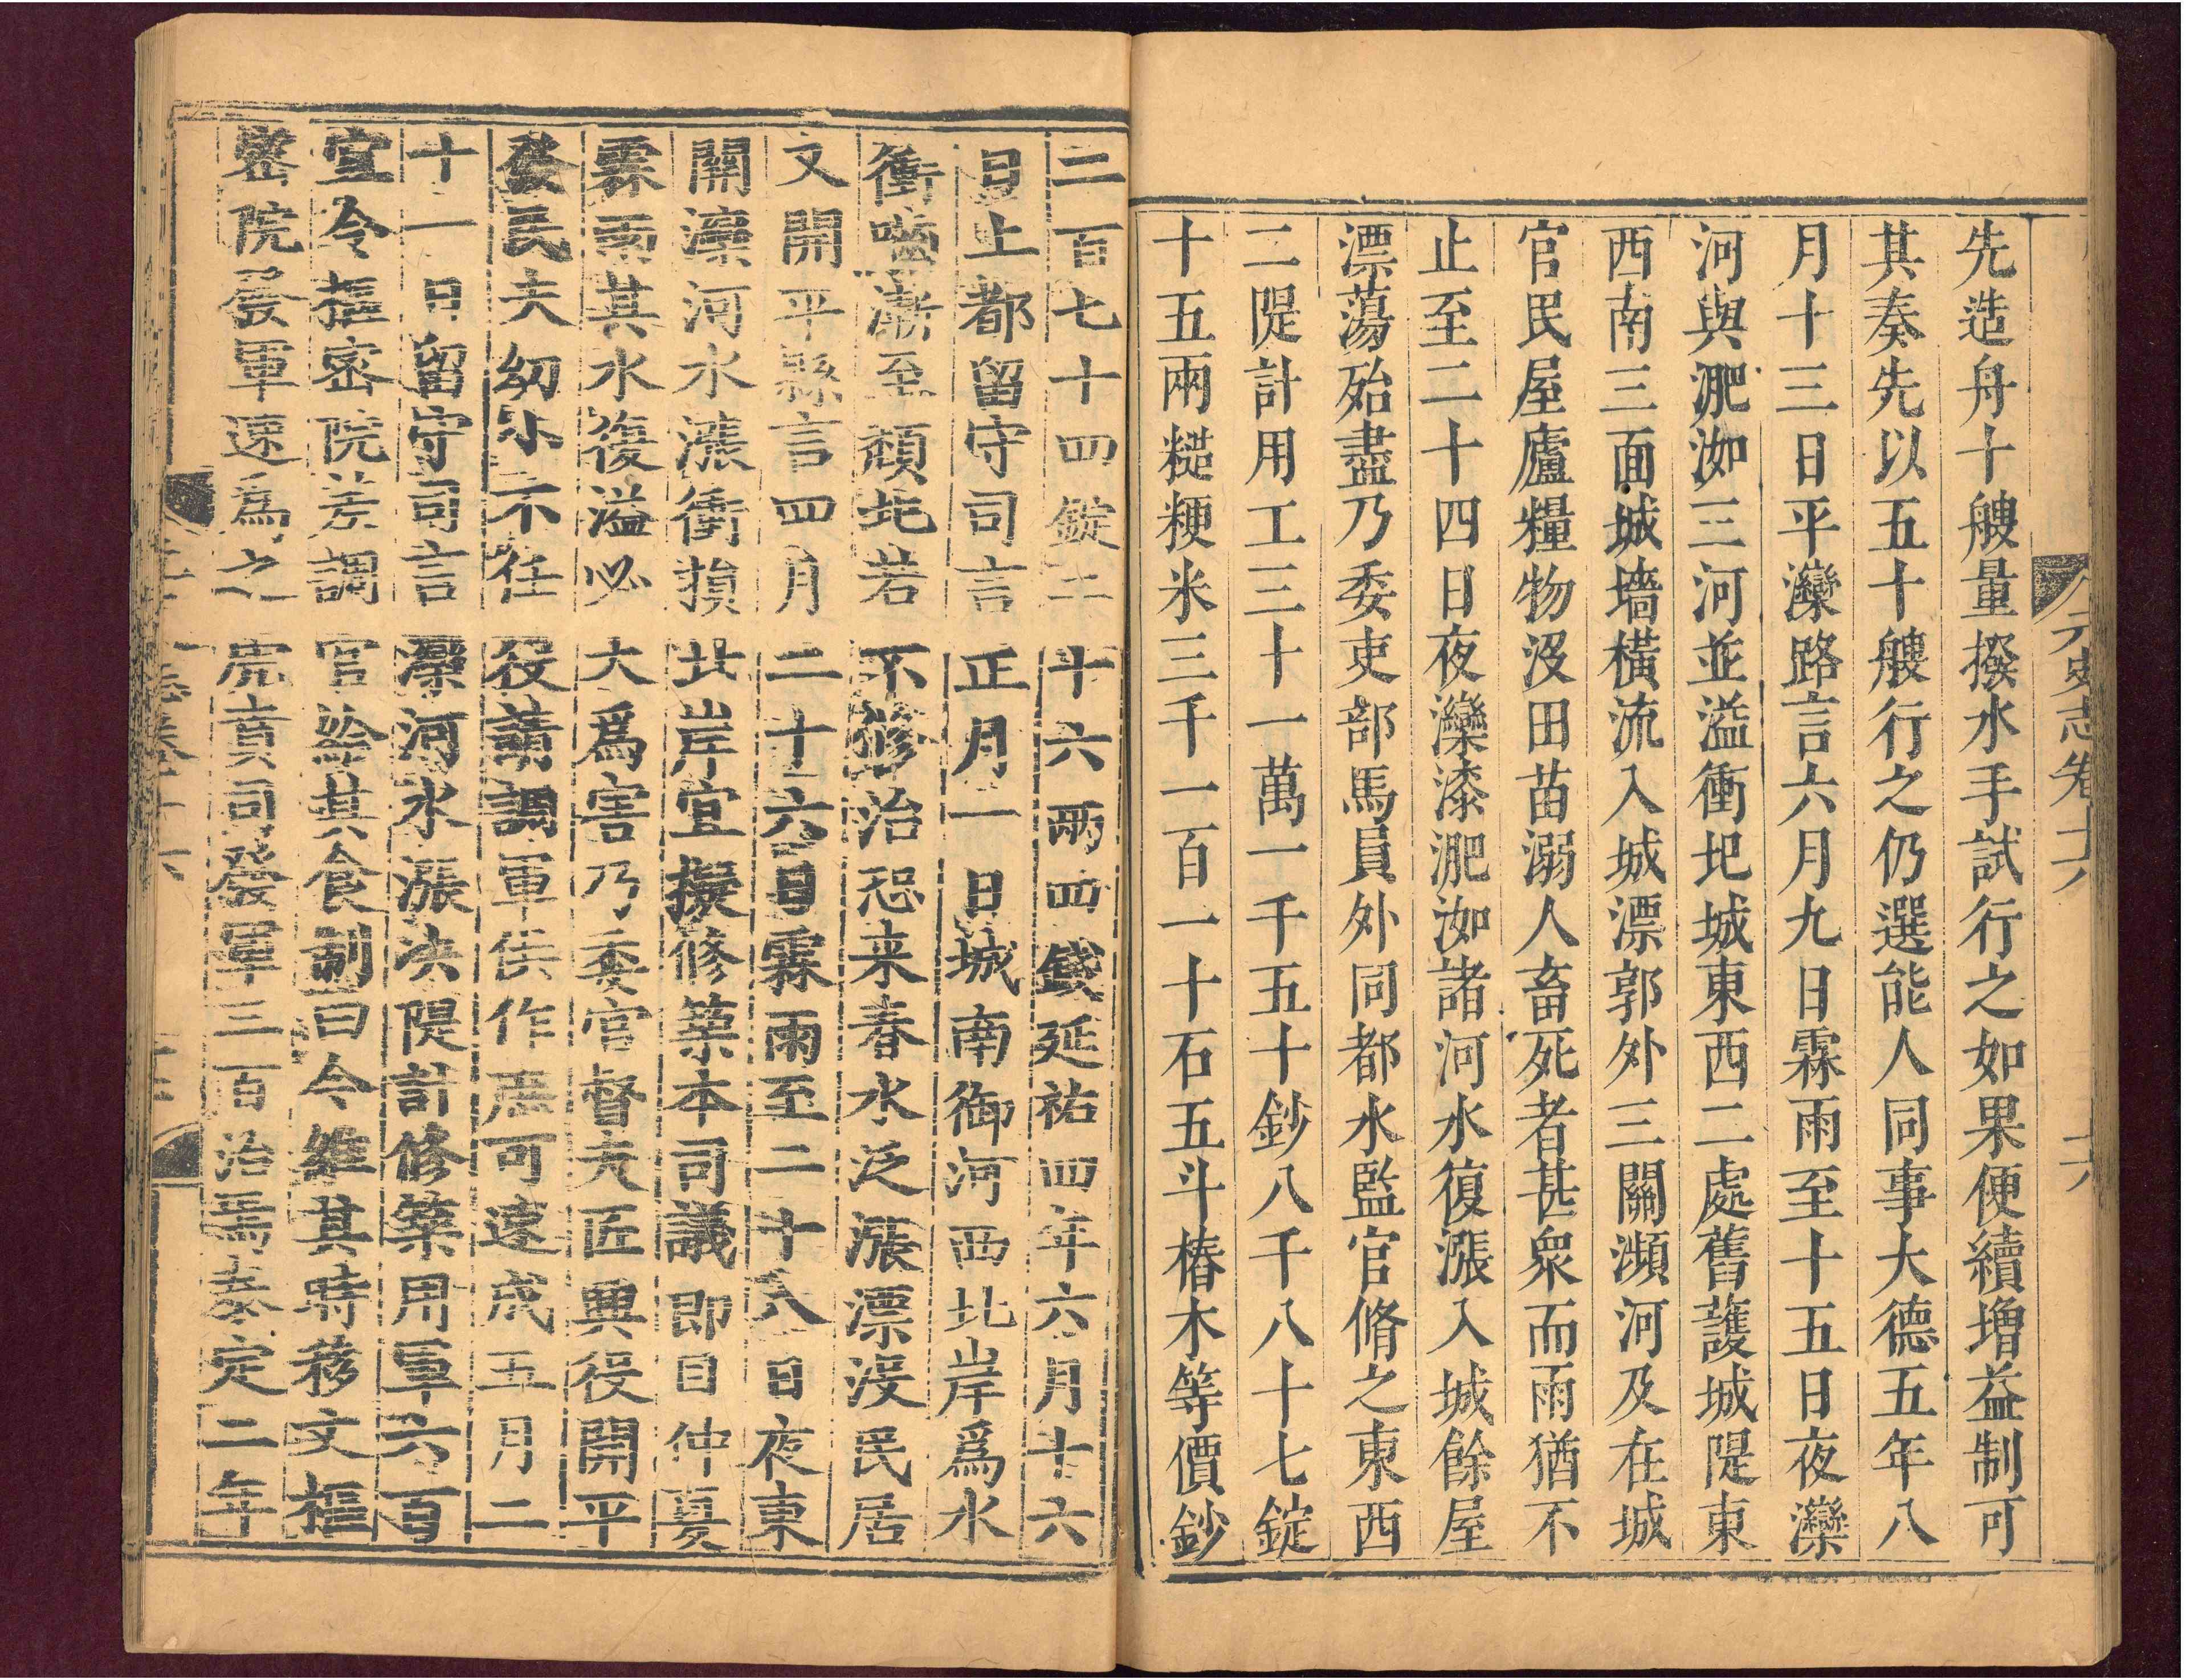 先造舟十艘量撥水手試行之如果便續增益制可
其奏先以五十艘行之仍選能人同事大德五年八
月十三日平灤路言六月九日霖雨至十五日夜灤
河與淝洳三河並溢衝圮城東西二處舊護城隄東
西南三面城墻橫流入城漂郭外三關瀕河及在城
官民屋廬糧物沒田苗溺人畜死者甚衆而雨猶不
止至二十四日夜灤漆淝洳諸河水復漲入城餘屋
漂蕩殆盡乃委吏部馬員外同都水監官脩之東西
二隄計用工三十一萬一千五十鈔八千八十七錠
十五兩糙粳米三千一百一十石五斗樁木等價鈔
元史志卷十六
十六
二百七十四錠二十六兩四錢延祐四年六月十六
日上都留守司言正月一日城南御河西北岸爲水
衝嚙漸至頹圮若不修治恐来春水泛漲漂沒民居
文開平縣言四月二十六日霖雨至二十八日夜東
關灤河水漲衝損北岸宜擬修築本司議即目仲夏
霖雨其水復溢必大爲害乃委官督夫匠興役開平
發民夫幼小不任役請調軍供作庶可速成五月二
十一日留守司言灤河水漲決隄計修築用軍六百
宜令樞密院差調官給其食制曰今維其時移文樞
密院發軍速爲之虎賁司發軍三百治焉泰定二年
志卷十六